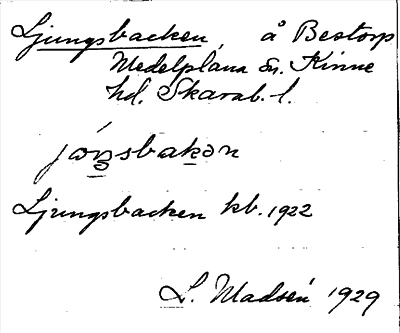 Ljungsbacken, å Bestorp
Medelplana sn. Kinne
hd. Skarab. l.
jóŋsbakən
Ljungsbacken kb. 1922
L. Madsén 1929